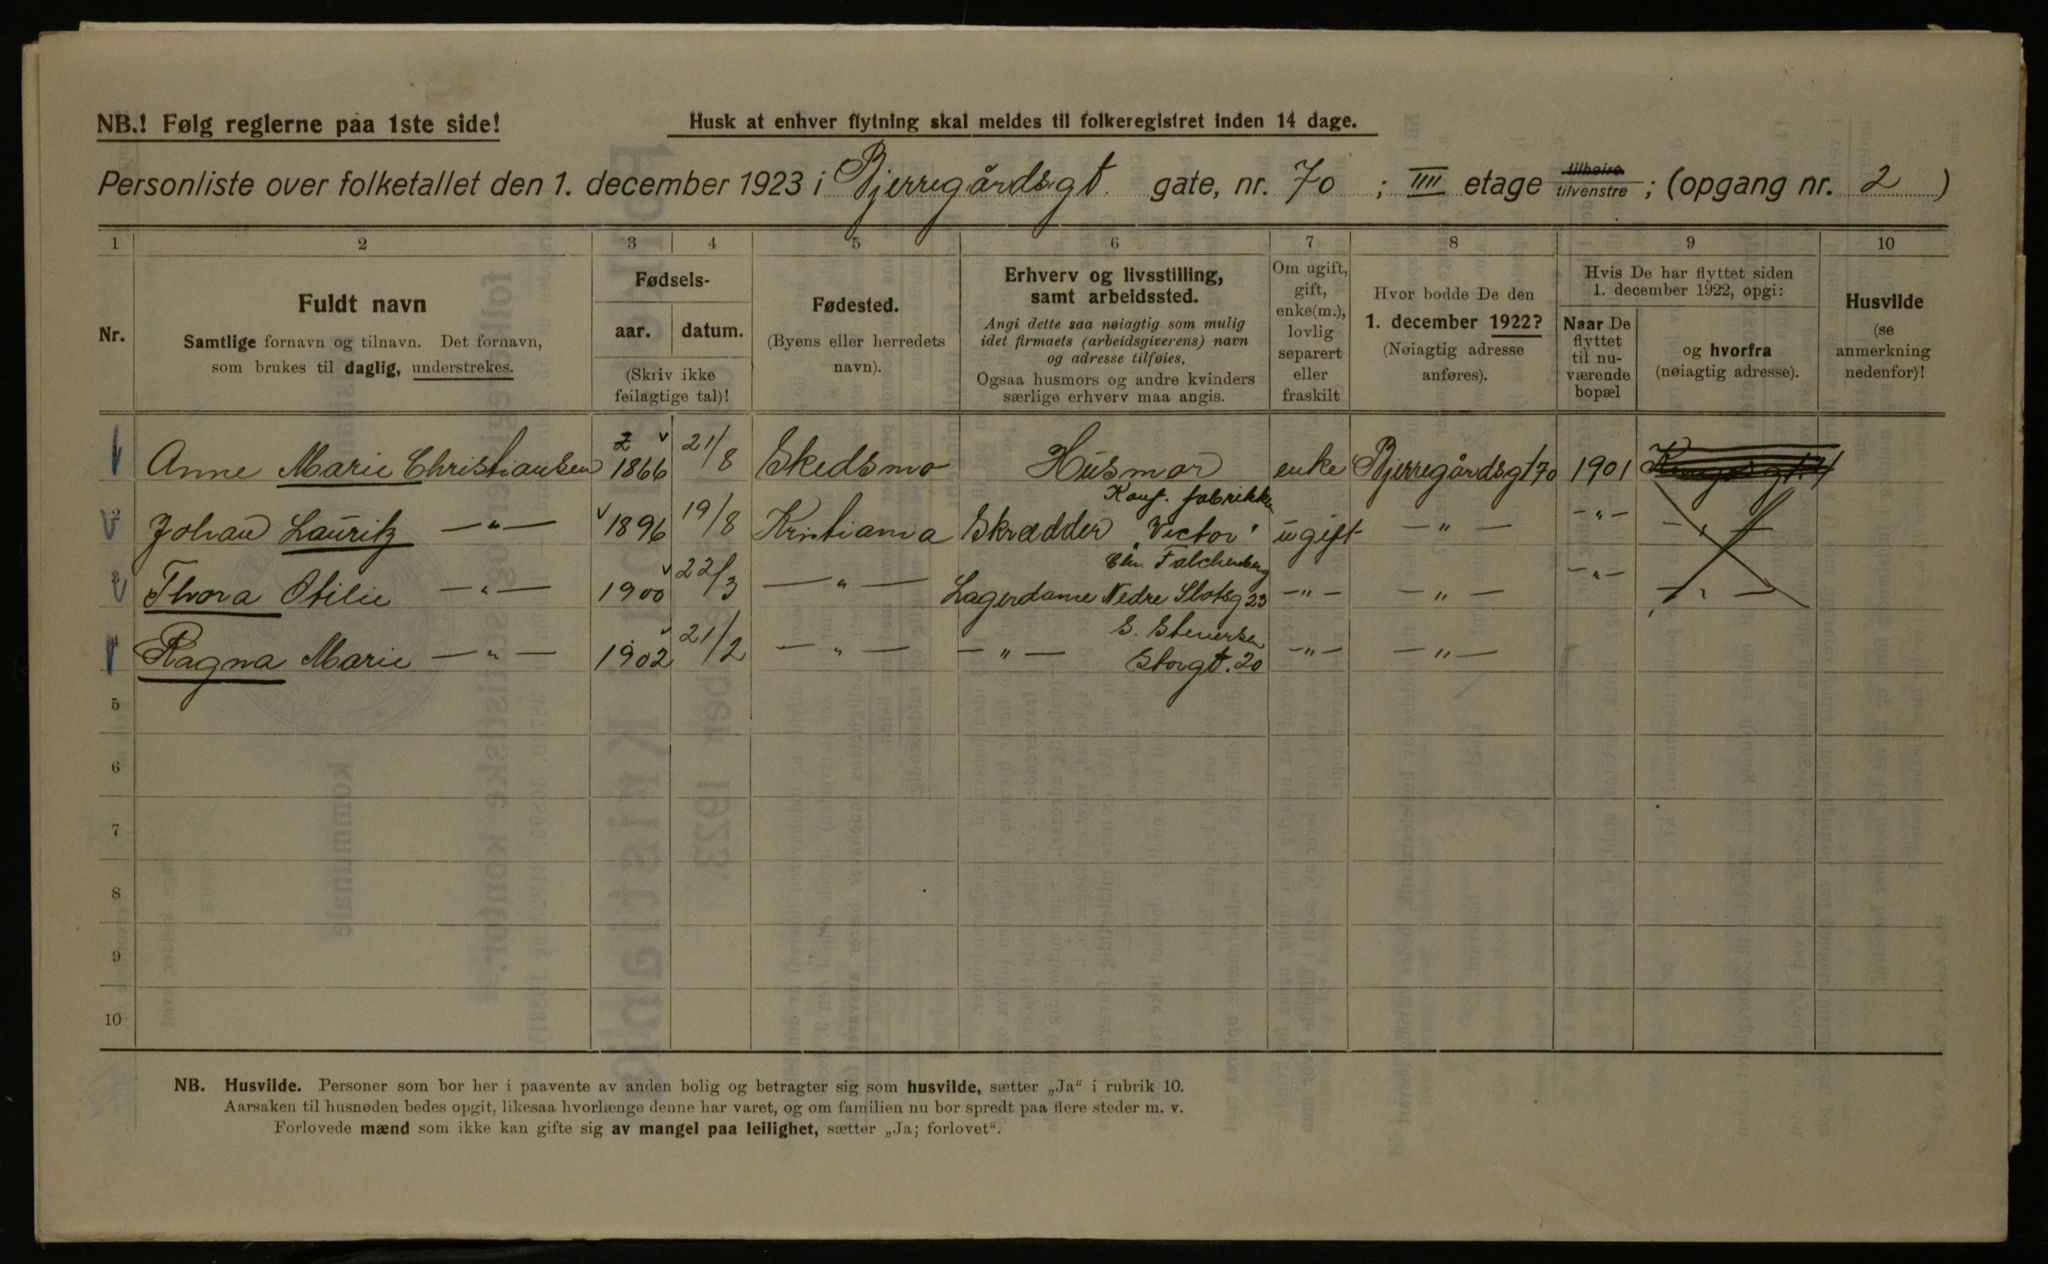 NB.! Følg reglerne paa 1ste side!
Husk at enhver flytning skal meldes til folkeregistret inden 14 dage.
Personliste over folketallet den 1. december 1923 i Bjerregårdsgt. gate, nr. 70 ; IIII etage tilhøire tilvenstre ; (opgang nr. 2 )
1 2 3 4 5 6 7 8 9 10
Nr.
Fuldt navn
Samtlige fornavn og tilnavn. Det fornavn,
som brukes til daglig, understrekes.
Fødsels-
aar. datum.
(Skriv ikke
feilagtige tal)!
Fødested.
(Byens eller herredets
navn).
Erhverv og livsstilling,
samt arbeidssted.
Angi dette saa nøiagtig som mulig
idet firmaets (arbeidsgiverens) navn
og adresse tilføies.
Ogsaa husmors og andre kvinders
særlige erhverv maa angis.
Om ugift,
gift,
enke(m.),
lovlig
separert
eller
fraskilt
Hvor bodde De den
1. december 1922?
(Nøiagtig adresse
anføres).
Hvis De har flyttet siden
1. december 1922, opgi:
Naar De
flyttet
til nu-
værende
bopæl
og hvorfra
(nøiagtig adresse).
Husvilde
(se
anmerkning
nedenfor)!
Anne Marie Christiansen 1866 21/8 Skedsmo Husmor enke Bjerregårdsgt 70 1901
2 Johan Lauritz —„— 1896 19/8 Kristiania Skrædder Konf. fabrikken „Victor" ugift —„— —„— —„—
3 Thora Otilie —„— 1900 22/3 —„— Lagerdame Chr. Falchenberg Nedre Slotsg 23 —„— —„— —„— —„—
Ragna Marie —„— 1902 21/2 —„— —„— S. Stenersen Storgt. 20 —„— —„—
5
6
7
8
9
10
NB. Husvilde. Personer som bor her i paavente av anden bolig og betragter sig som husvilde, sætter „Ja" i rubrik 10.
Aarsaken til husnøden bedes opgit, likesaa hvorlænge denne har varet, og om familien nu bor spredt paa flere steder m. v.
Forlovede mænd som ikke kan gifte sig av mangel paa leilighet, sætter „Ja; forlovet".